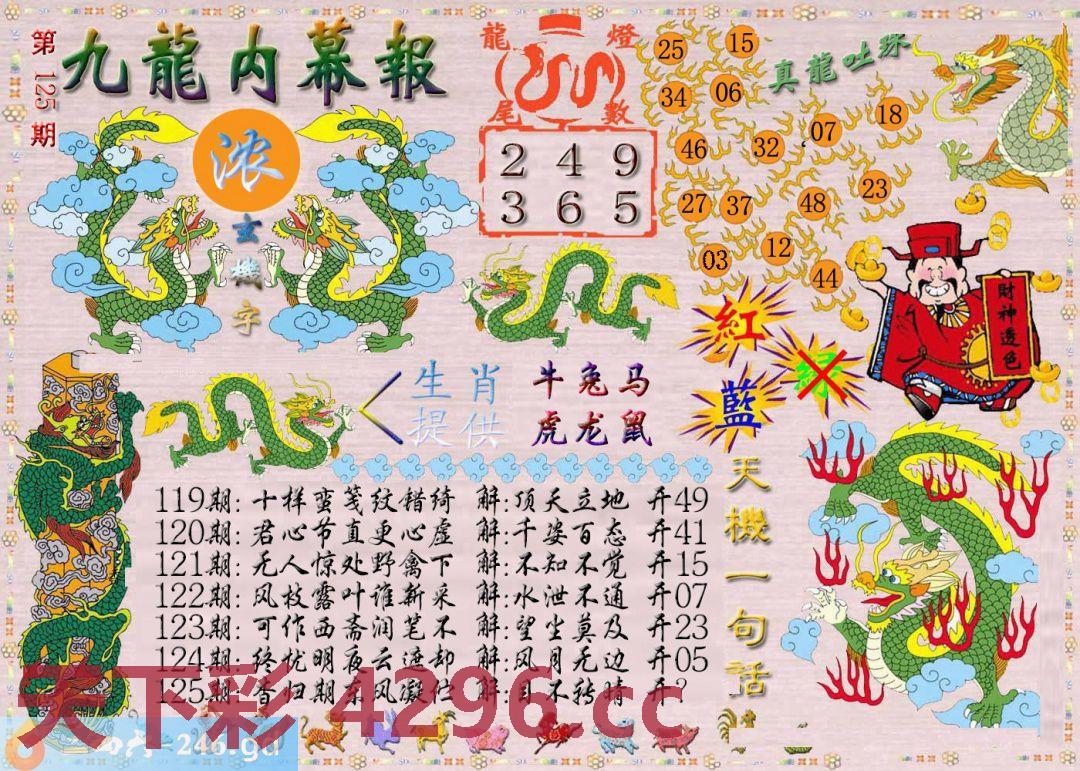 第125期
九龍内幕報
浓
玄機字
龍燈
尾數
2 4 9
3 6 5
真龍吐珠
25 15
34 06
46 32 07 18
27 37 48 23
03 12 44
紅
绿
藍
財神透色
生肖提供
牛兔马
虎龙鼠
119期: 十样蛮笺纹错绮 解:顶天立地 开49
120期: 君心节直更心虚 解:千姿百态 开41
121期: 无人惊处野禽下 解:不知不觉 开15
122期: 风枝露叶谁新采 解:水泄不通 开07
123期: 可作西斋润笔不 解:望尘莫及 开23
124期: 终忧明夜云遮却 解:风月无边 开05
125期: 香归期东风凝伫 解:目不转睛 开?
天機一句话
天下彩 4296.cc
246.gd